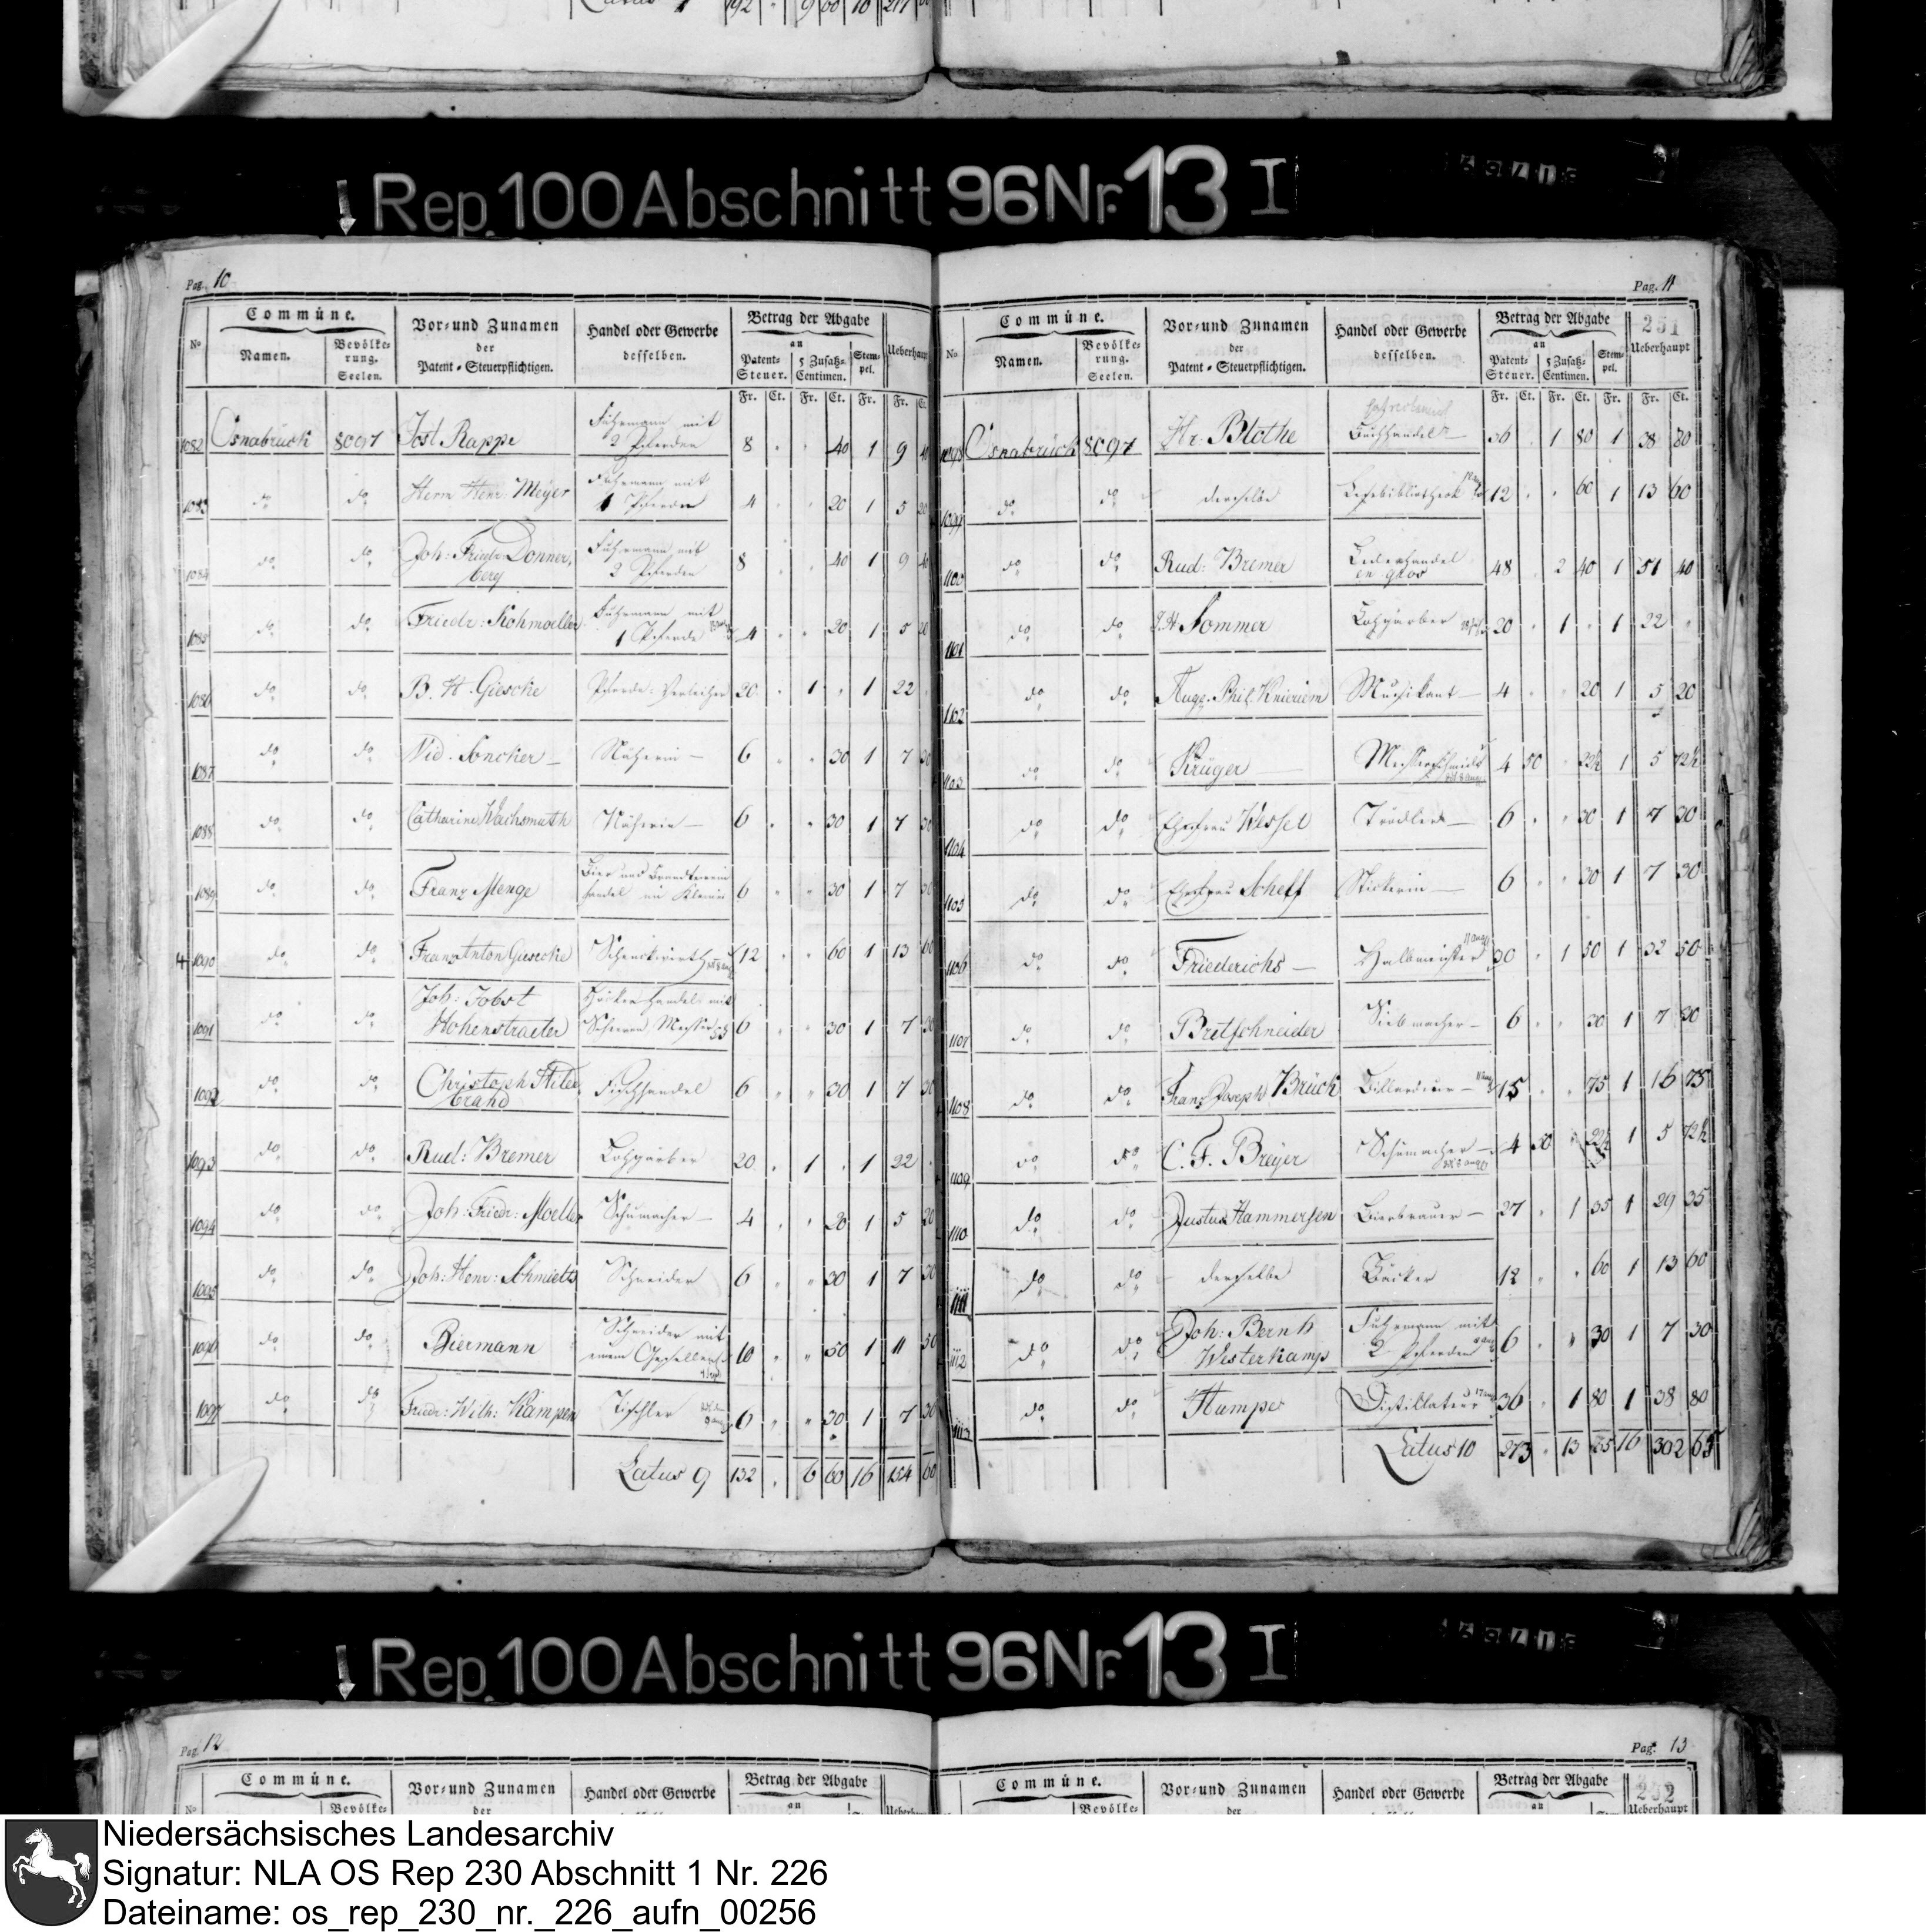 Rep. 100 Abschnitt 96 Nr. 13 I
Pag. 10
No Commüne. Vor- und Zunamen der Patent-Steuerpflichtigen. Handel oder Gewerbe desselben. Betrag der Abgabe an Ueberhaupt
Namen. Bevölkerung. Seelen. Patent-Steuer. 5 Zusatz-Centimen. Stempel.
Fr. Ct. Fr. Ct. Fr. Fr. Ct.
1082 Osnabrück 8097 Jost Rappe Fuhrmann mit 2 Pferden 8 40 1 9 40
1083 do do Herm Henr: Meyer Fuhrmann mit 1 Pferde 4 20 1 5 20
1084 do do Joh: Friedr Donnerberg Fuhrmann mit 2 Pferden 8 40 1 9 40
1085 do do Friedr: Kohmoeller Fuhrmann mit 1 Pferde 4 20 1 5 20
1086 do do B. H. Giescke Pferde-Verleiher 20 1 1 22
1087 do do Wid. Soncker Näherin 6 30 1 7 30
1088 do do Catharine Wachsmuth Näherin 6 30 1 7 30
1089 do do Franz Menge Bier und Brandtwein handel im Kleinen 6 30 1 7 30
1090 do do Franz Anton Giesecke Schenkwirth 12 60 1 13 60
1091 do do Joh: Jobst Hohenstraeter Höcker Handel mit 6 30 1 7 30
1092 do do Christoph Hilebrand Fischhandel 6 30 1 7 30
1093 do do Rud: Bremer Lohgärber 20 1 1 22
1094 do do Joh: Friedr: Moeller Schumacher 4 20 1 5 20
1095 do do Joh: Henr: Schmidts Schneider 6 30 1 7 30
1096 do do Biermann Schneider mit einem Gesellen 10 50 1 11 50
1097 do do Friedr: Wilh: Kämpen Tischler 6 30 1 7 30
Latus 9 132 6 60 16 154 60
Pag. 11
251
No Commüne. Vor- und Zunamen der Patent-Steuerpflichtigen. Handel oder Gewerbe desselben. Betrag der Abgabe an Ueberhaupt
Namen. Bevölkerung. Seelen. Patent-Steuer. 5 Zusatz-Centimen. Stempel.
Fr. Ct. Fr. Ct. Fr. Fr. Ct.
1098 Osnabrück 8097 Hr. Blothe Buchhandel 36 1 80 1 38 80
1099 do do derselbe Lesebibliotheck 12 60 1 13 60
1100 do do Rud: Bremer Lederhandel en gros 48 2 40 1 51 40
1101 do do Sommer Lohgärber 20 1 1 22
1102 do do Aug. Phil. Knieriem Musikant 4 20 1 5 20
1103 do do Krüger Messerschmidt 4 50 22½ 1 5 72½
1104 do do Ehefrau Wessel Trödler 6 30 1 7 30
1105 do do Ehefrau Scheff Stickerin 6 30 1 7 30
1106 do do Friederichs Halbmeister 30 1 50 1 32 50
1107 do do Bretschneider Siebmacher 6 30 1 7 30
1108 do do Franz Joseph Brück Billardeur 15 75 1 16 75
1109 do do C. F. Breyer Schumacher 4 50 22½ 1 5 72½
1110 do do Justus Hammersen Bierbrauer 27 1 35 1 29 35
1111 do do derselbe Bäcker 12 60 1 13 60
1112 do do Joh: Bernh Westerkamp Fuhrmann mit 2 Pferden 6 30 1 7 30
1113 do do Humpe Distillateur 36 1 80 1 38 80
Latus 10 273 13 65 16 302 65
Rep. 100 Abschnitt 96 Nr. 13 I
Pag. 12
Commüne. Vor- und Zunamen Handel oder Gewerbe Betrag der Abgabe
Pag. 13
Commüne. Vor- und Zunamen Handel oder Gewerbe Betrag der Abgabe 252
Niedersächsisches Landesarchiv
Signatur: NLA OS Rep 230 Abschnitt 1 Nr. 226
Dateiname: os_rep_230_nr._226_aufn_00256